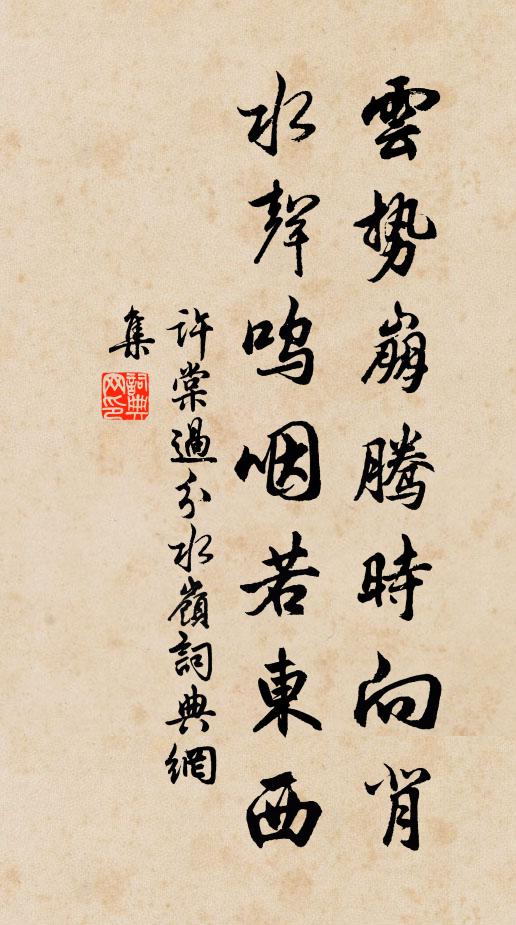 雲勢崩騰時向背
水聲嗚咽若東西
許棠過分水嶺詞典網
集
詞典網印